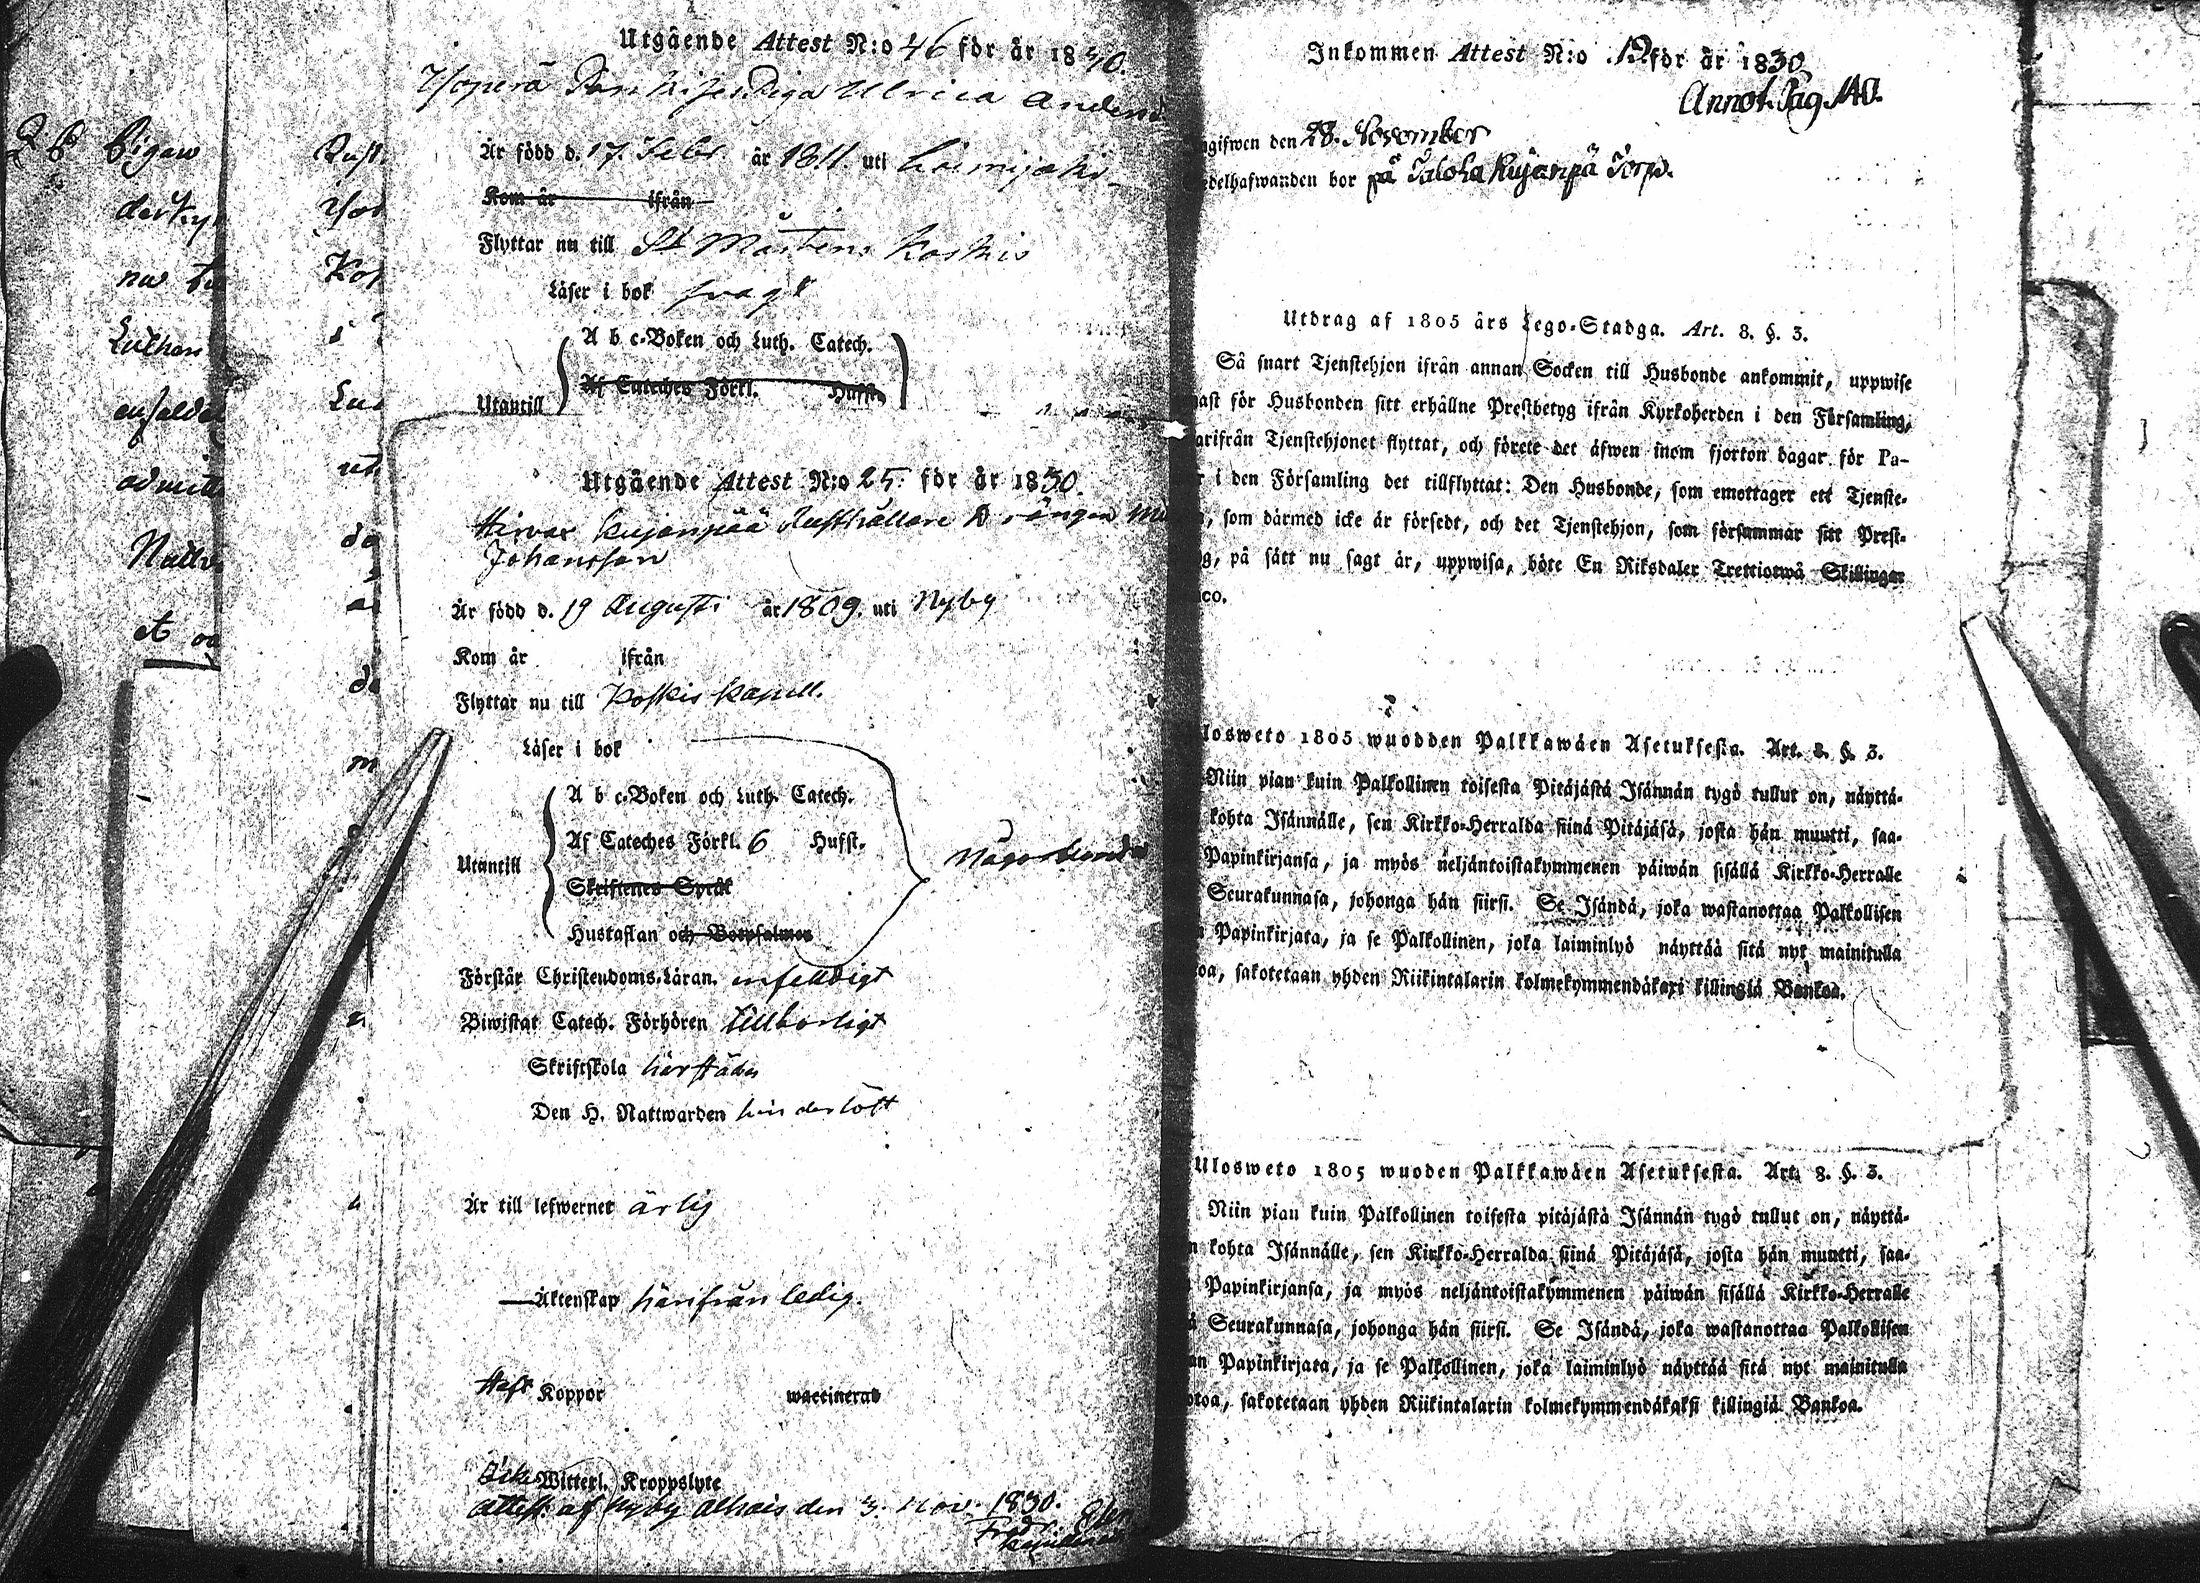 Utgående Attest N:o 46 för år 1830.
Piga Ulrica
Är född d. 17. Febr. år 1811. uti Loimijoki
Kom år ifrån
Flyttar nu till St Mårtens Koskis
Läser i bok svagt
A b c-Boken och Luth. Catech.
Af Cateches Förkl. Hufst.
Utantill
Utgående Attest N:o 25. för år 1830.
Hirvas Kujanpää Rusthållare Drängen
Johansson
Är född d. 19 Augusti år 1809. uti Nyby
Kom år ifrån
Flyttar nu till Koskis Kapell.
Läser i bok
A b c-Boken och Luth. Catech.
Af Cateches Förkl. 6 Hufst.
Utantill
Någorlunda
Skriftenes Språk
Hustaflan och Botpsalmer
Förstår Christendoms-Läran. enfeldigt
Biwistat Catech. Förhören tillbörligt
Skriftskola härstädes
Den H. Nattwarden
Är till lefwernet ärlig
Äktenskap härifrån ledig.
Haft Koppor waccinerad
Icke Witterl. Kroppslyte
Attest. af Nyby den 3. Nov. 1830.
Inkommen Attest N:o 12 för år 1830
Annot. Pag. 140.
ngifwen den 28. November
edelhafwanden bor på Talola Kujanpä Torp.
Utdrag af 1805 års Lego-Stadga. Art. 8. §. 3.
Så snart Tjenstehjon ifrån annan Socken till Husbonde ankommit, uppwise
nast för Husbonden sitt erhållne Prestbetyg ifrån Kyrkoherden i den Församling,
arifrån Tjenstehjonet flyttat, och förete det äfwen inom fjorton dagar för Pa-
r i den Församling det tillflyttat: Den Husbonde, som emottager ett Tjenste-
, som därmed icke är försedt, och det Tjenstehjon, som försummar sitt Prest-
g, på sätt nu sagt är, uppwisa, böte En Riksdaler Trettiotwå Skillingar
co.
losweto 1805 wuodden Palkkawäen Asetuksesta. Art. 8. §. 3.
Niin pian kuin Palkollinen toisesta Pitäjästä Isännän tygö tullut on, näyttä-
kohta Isännälle, sen Kirkko-Herralda siinä Pitäjäsä, josta hän muutti, saa-
Papinkirjansa, ja myös neljäntoistakymmenen päiwän sisällä Kirkko-Herralle
Seurakunnasa, johonga hän siirsi. Se Isändä, joka wastanottaa Palkollisen
n Papinkirjata, ja se Palkollinen, joka laiminlyö näyttää sitä nyt mainitulla
toa, sakotetaan yhden Riikintalarin kolmekymmendäkaxi killingiä Bankoa.
Ulosweto 1805 wuoden Palkkawäen Asetuksesta. Art. 8. §. 3.
Niin pian kuin Palkollinen toisesta pitäjästä Isännän tygö tullut on, näyttä-
n kohta Isännälle, sen Kirkko-Herralda siinä Pitäjäsä, josta hän muutti, saa-
Papinkirjansa, ja myös neljäntoistakymmenen päiwän sisällä Kirkko-Herralle
ä Seurakunnasa, johonga hän siirsi. Se Isändä, joka wastanottaa Palkollisen
an Papinkirjata, ja se Palkollinen, joka laiminlyö näyttää sitä nyt mainitulla
otoa, sakotetaan yhden Riikintalarin kolmekymmendäkaksi killingiä Bankoa.